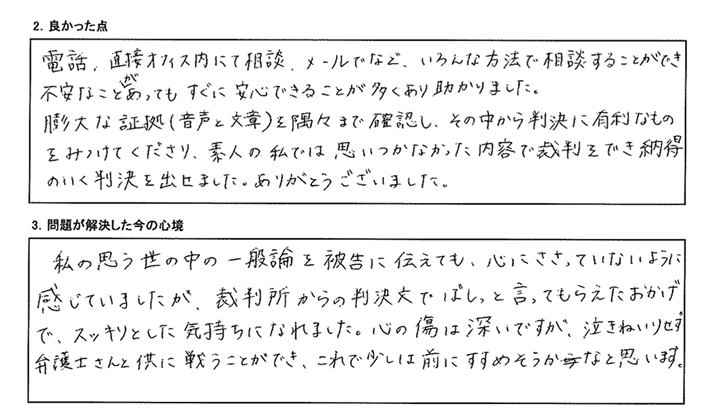 2. 良かった点
電話、直接オフィス内にて相談、メールでなど、いろんな方法で相談することができ
不安なことがあってもすぐに安心できることが多くあり助かりました。
膨大な証拠(音声と文章)を隅々まで確認し、その中から判決に有利なもの
をみつけてくださり、素人の私では思いつかなかった内容で裁判をでき納得
のいく判決を出せました。ありがとうございました。
3. 問題が解決した今の心境
私の思う世の中の一般論を被告に伝えても、心にささっていないように
感じていましたが、裁判所からの判決文でばしっと言ってもらえたおかげ
で、スッキリとした気持ちになれました。心の傷は深いですが、泣きねいりせず
弁護士さんと供に戦うことができ、これで少しは前にすすめそうかなと思います。